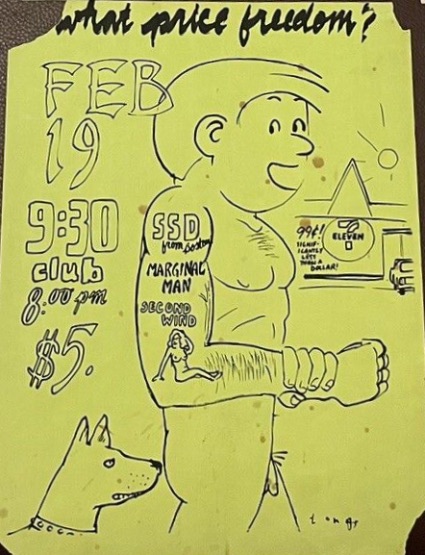 what price freedom?
FEB
19
9:30
club
8:00 pm
$5.
SSD
from Boston
MARGINAL
MAN
SECOND
WIND
99¢!
SIGNIF-
ICANTLY
LESS
THAN A
DOLLAR!
7
ELEVEN